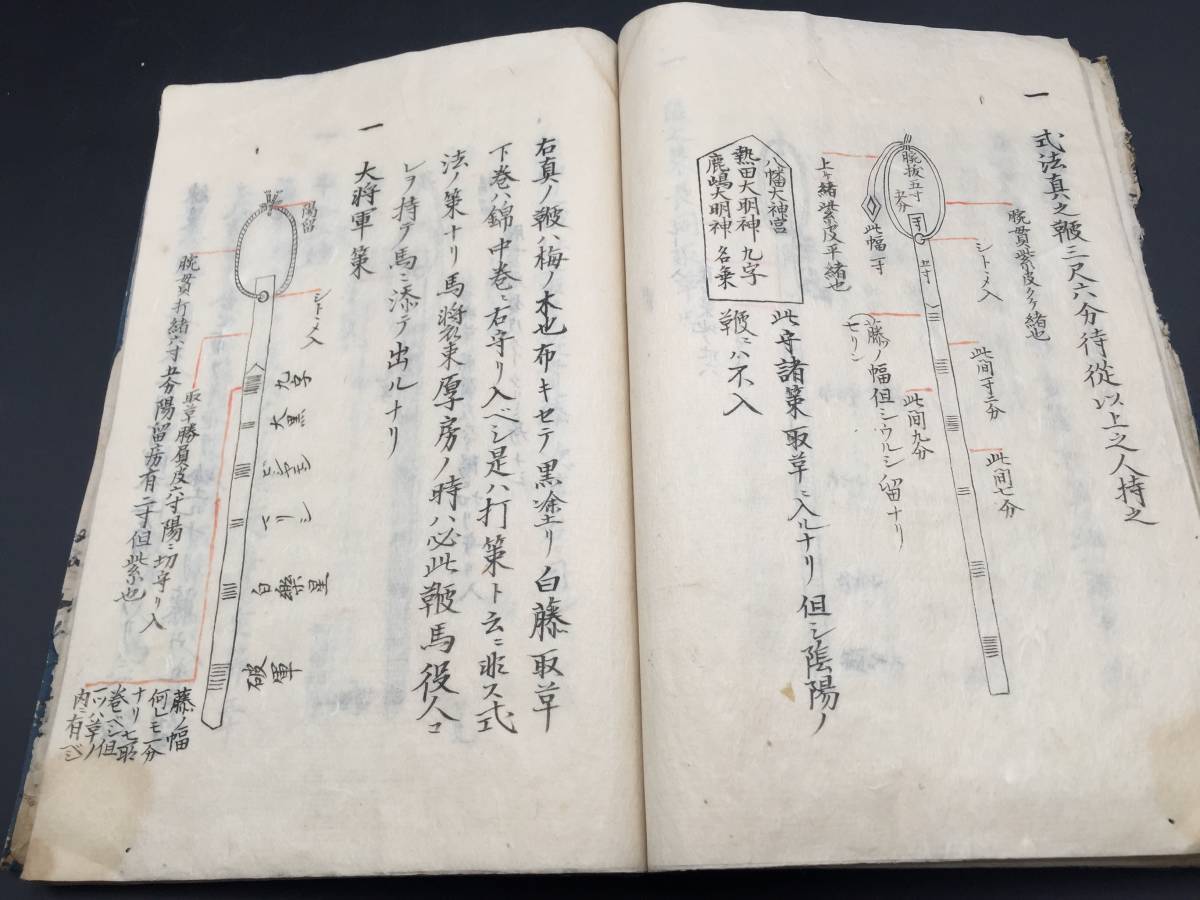 一
式法真之鞭三尺六分待従以上之人持之
腕貫紫皮クケ緒也
シトヽメ入
此間一寸二分
此間七分
腕抜五寸
五分
一寸
上ケ緒紫皮平緒也
此幅一寸
藤ノ幅但シウルシ留ナリ
七リン
此間九分
八幡大神宮
熱田大明神 九字
鹿嶋大明神 名乗
此守諸策取草ニ入ルナリ但シ陰陽ノ
鞭ニハ不入
右真ノ鞭ハ梅ノ木也布キセテ黒塗リ白藤取草
下巻ハ錦中巻ニ右守リ入ベシ是ハ打策ト云ニ非ス式
法ノ策ナリ馬将衣束厚房ノ時ハ必此鞭馬役人コ
レヲ持テ馬ニ添テ出ルナリ
一
大将軍策
陽留
シトヽメ入
腕貫打緒六寸五分陽留房有二寸但紫也
取草勝負皮六寸陽ニ切守リ入
九字
大黒
白楽星
破軍
藤ノ幅
何レモ一分
ナリ七所
巻ベシ但
一ツハ草ノ
内ニ有ベシ